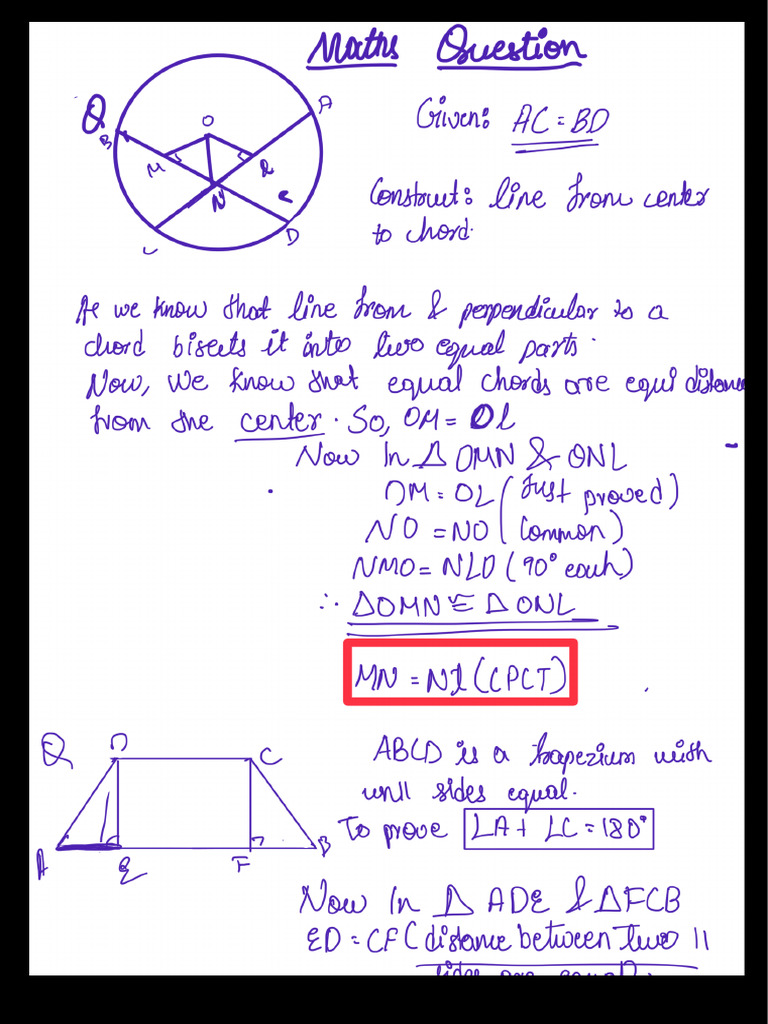 Maths Question
Q
B
O
A
M
L
N
C
D
Given: AC = BD
Construct: line from center
to chord.
As we know that line from & perpendicular to a
chord bisects it into two equal parts.
Now, we know that equal chords are equi distance
from the center. So, OM = OL
Now In Δ OMN & ONL
OM = OL (Just proved)
NO = NO (Common)
NMO = NLO (90° each)
∴ ΔOMN ≅ Δ ONL
MN = NL (CPCT)
Q
D
C
A
E
F
B
ABCD is a trapezium with
un|| sides equal.
To prove ∠A + ∠C = 180°
Now In Δ ADE & ΔFCB
ED = CF (distance between two ||
sides are equal.